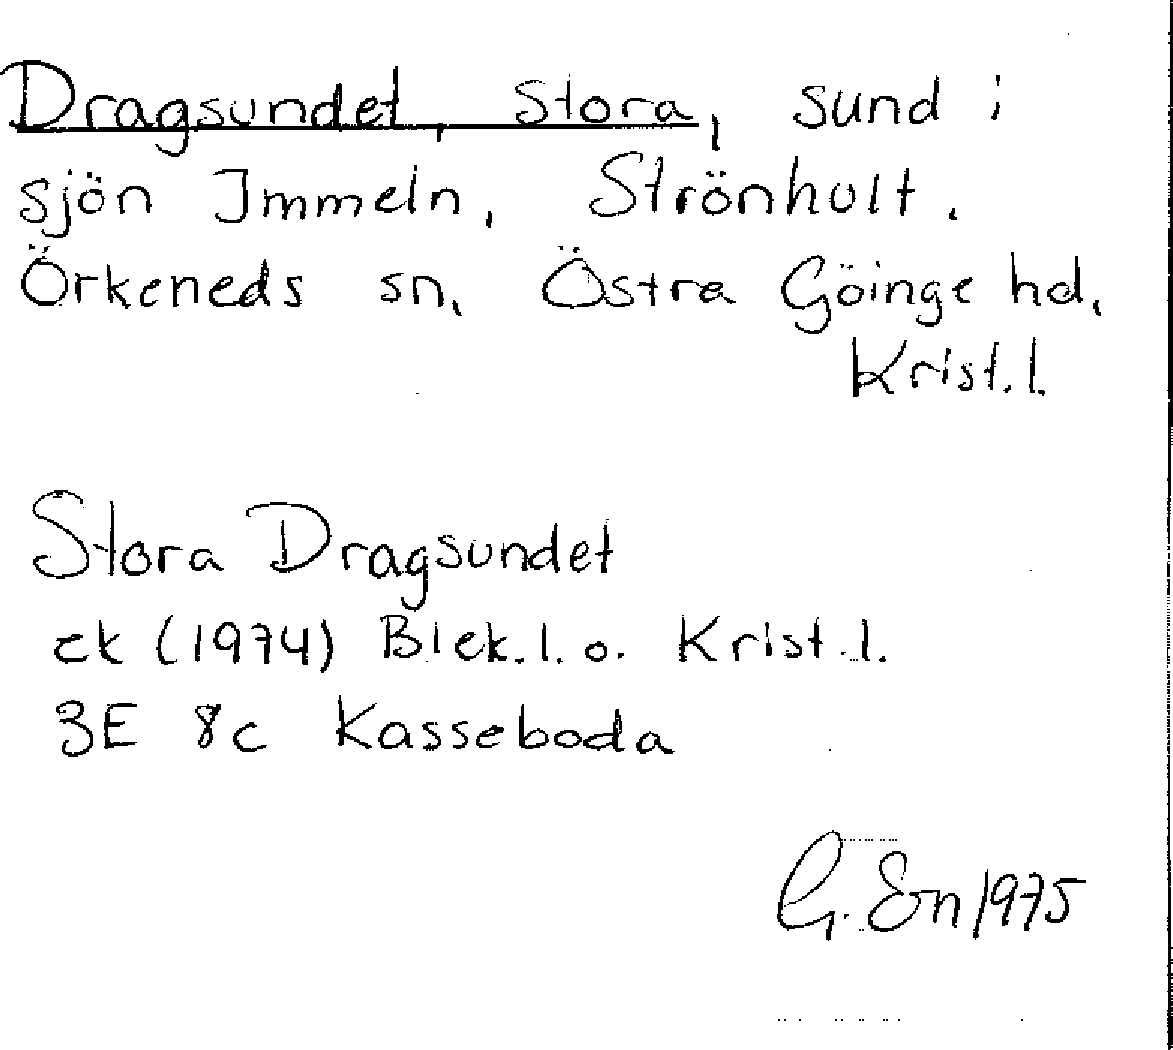 Dragsundet, Stora, sund i
sjön Immeln, Strönhult.
Örkeneds sn, Östra Göinge hd,
Krist.l.
Stora Dragsundet
ek (1974) Blek.l. o. Krist.l.
3E 8c Kasseboda
G. En 1975